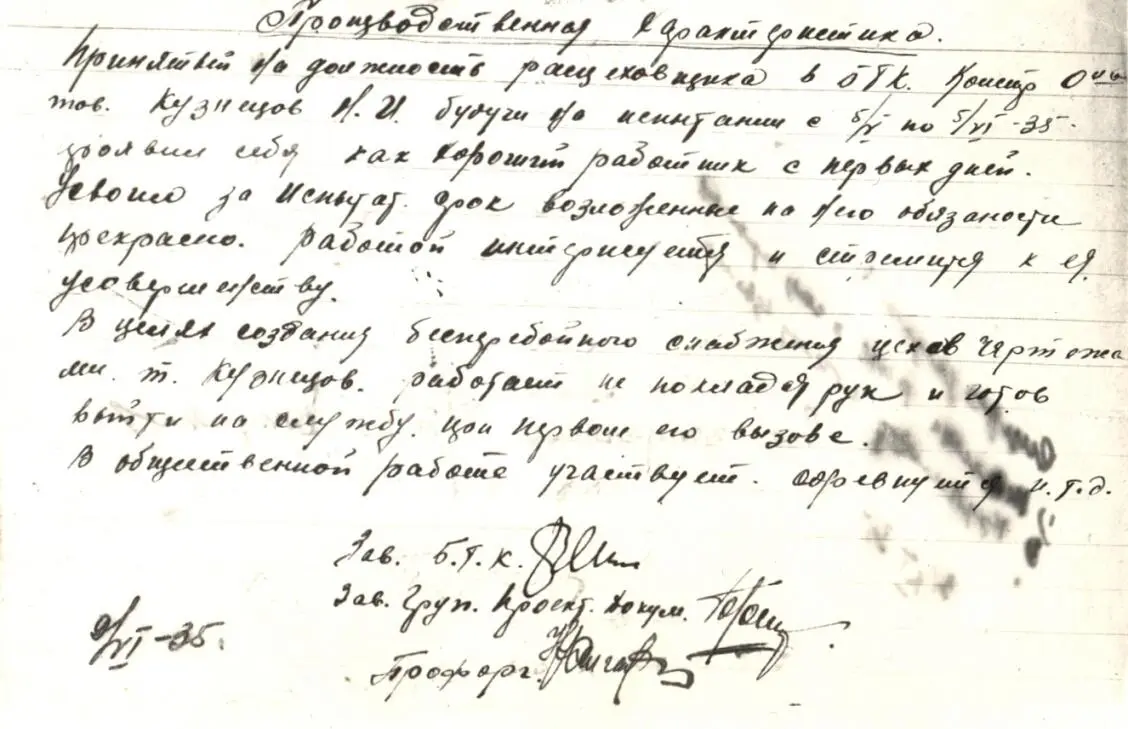 Производственная характеристика.
Принятый на должность расцеховщика в БТК. Констр
тов. Кузнецов Н. И. будучи на испытании с 5/V по 5/VI-35.
проявил себя как хороший работник с первых дней.
Усвоил за испытат. срок возложенные на него обязаности
прекрасно. Работой интересуется и стремится к ея
усовершенству.
В целях создания бесперебойного снабжения цехов чертежа
ми. т. Кузнецов. работает не покладая рук и готов
выйти на службу при первом его вызове.
В общественной работе участвует. соревнуется и.т.д.
Зав. Б.Т.К.
Зав. Груп. Проект. Докум.
9/VI-35.
Профорг.